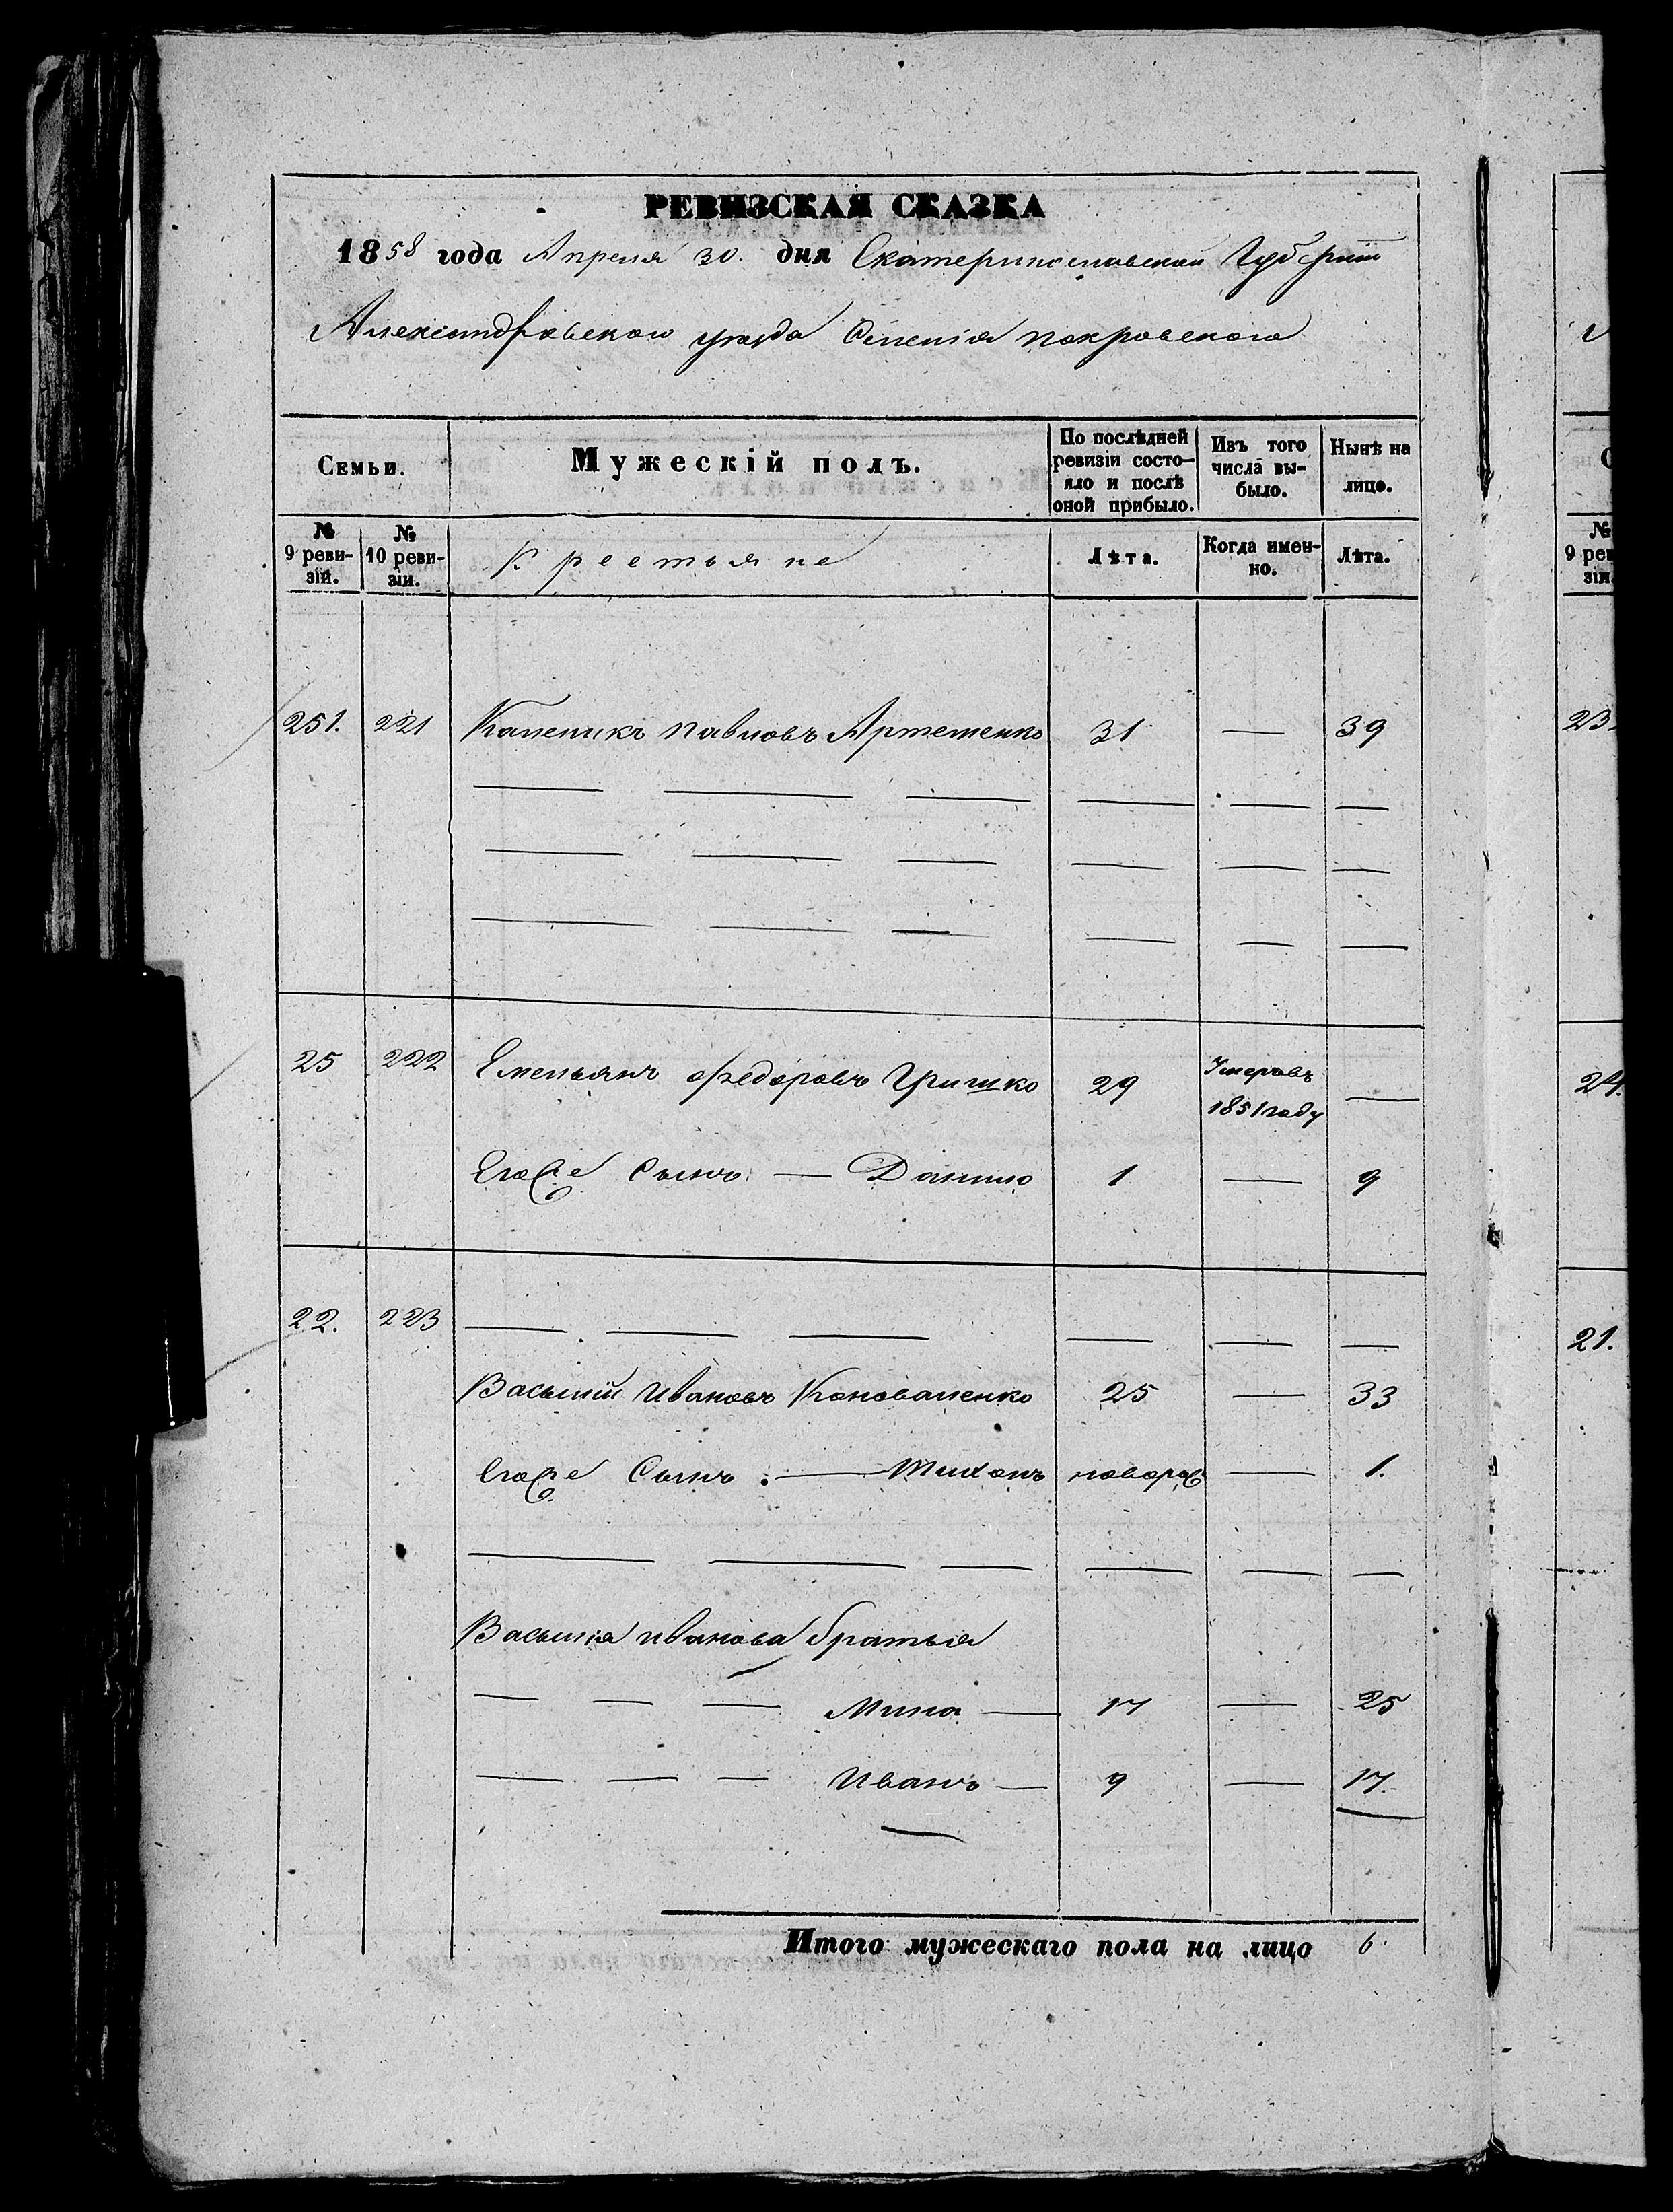 РЕВИЗСКАЯ СКАЗКА
1858 года Апреля 30. дня Екатеринославской Губернiи
Александровскаго уезда Селенiя покровскаго
Семьи.
Мужескiй полъ.
По послѣдней ревизiи состо-яло и послѣ оной прибыло.
Изъ того числа вы-было.
Нынѣ на лицо.
№ 9 реви-зiи.
№ 10 реви-зiи.
Крестьяне
Лѣта.
Когда имен-но.
Лѣта.
251. 221 Каленикъ павловъ Артеменко 31 — 39
25 222 Емельянъ федоровъ Гришко 29 Умеръ въ 1851 году —
Егоже Сынъ — Данило 1 — 9
22. 223
Василий Ивановъ Коноваленко 25 — 33
Егоже Сынъ. — Тихонъ новорож — 1.
Василiя иванова братья
Мина — 17 — 25
Иванъ — 9 — 17.
Итого мужескаго пола на лицо 6.
№
9 рев
зiи
23.
24.
21.